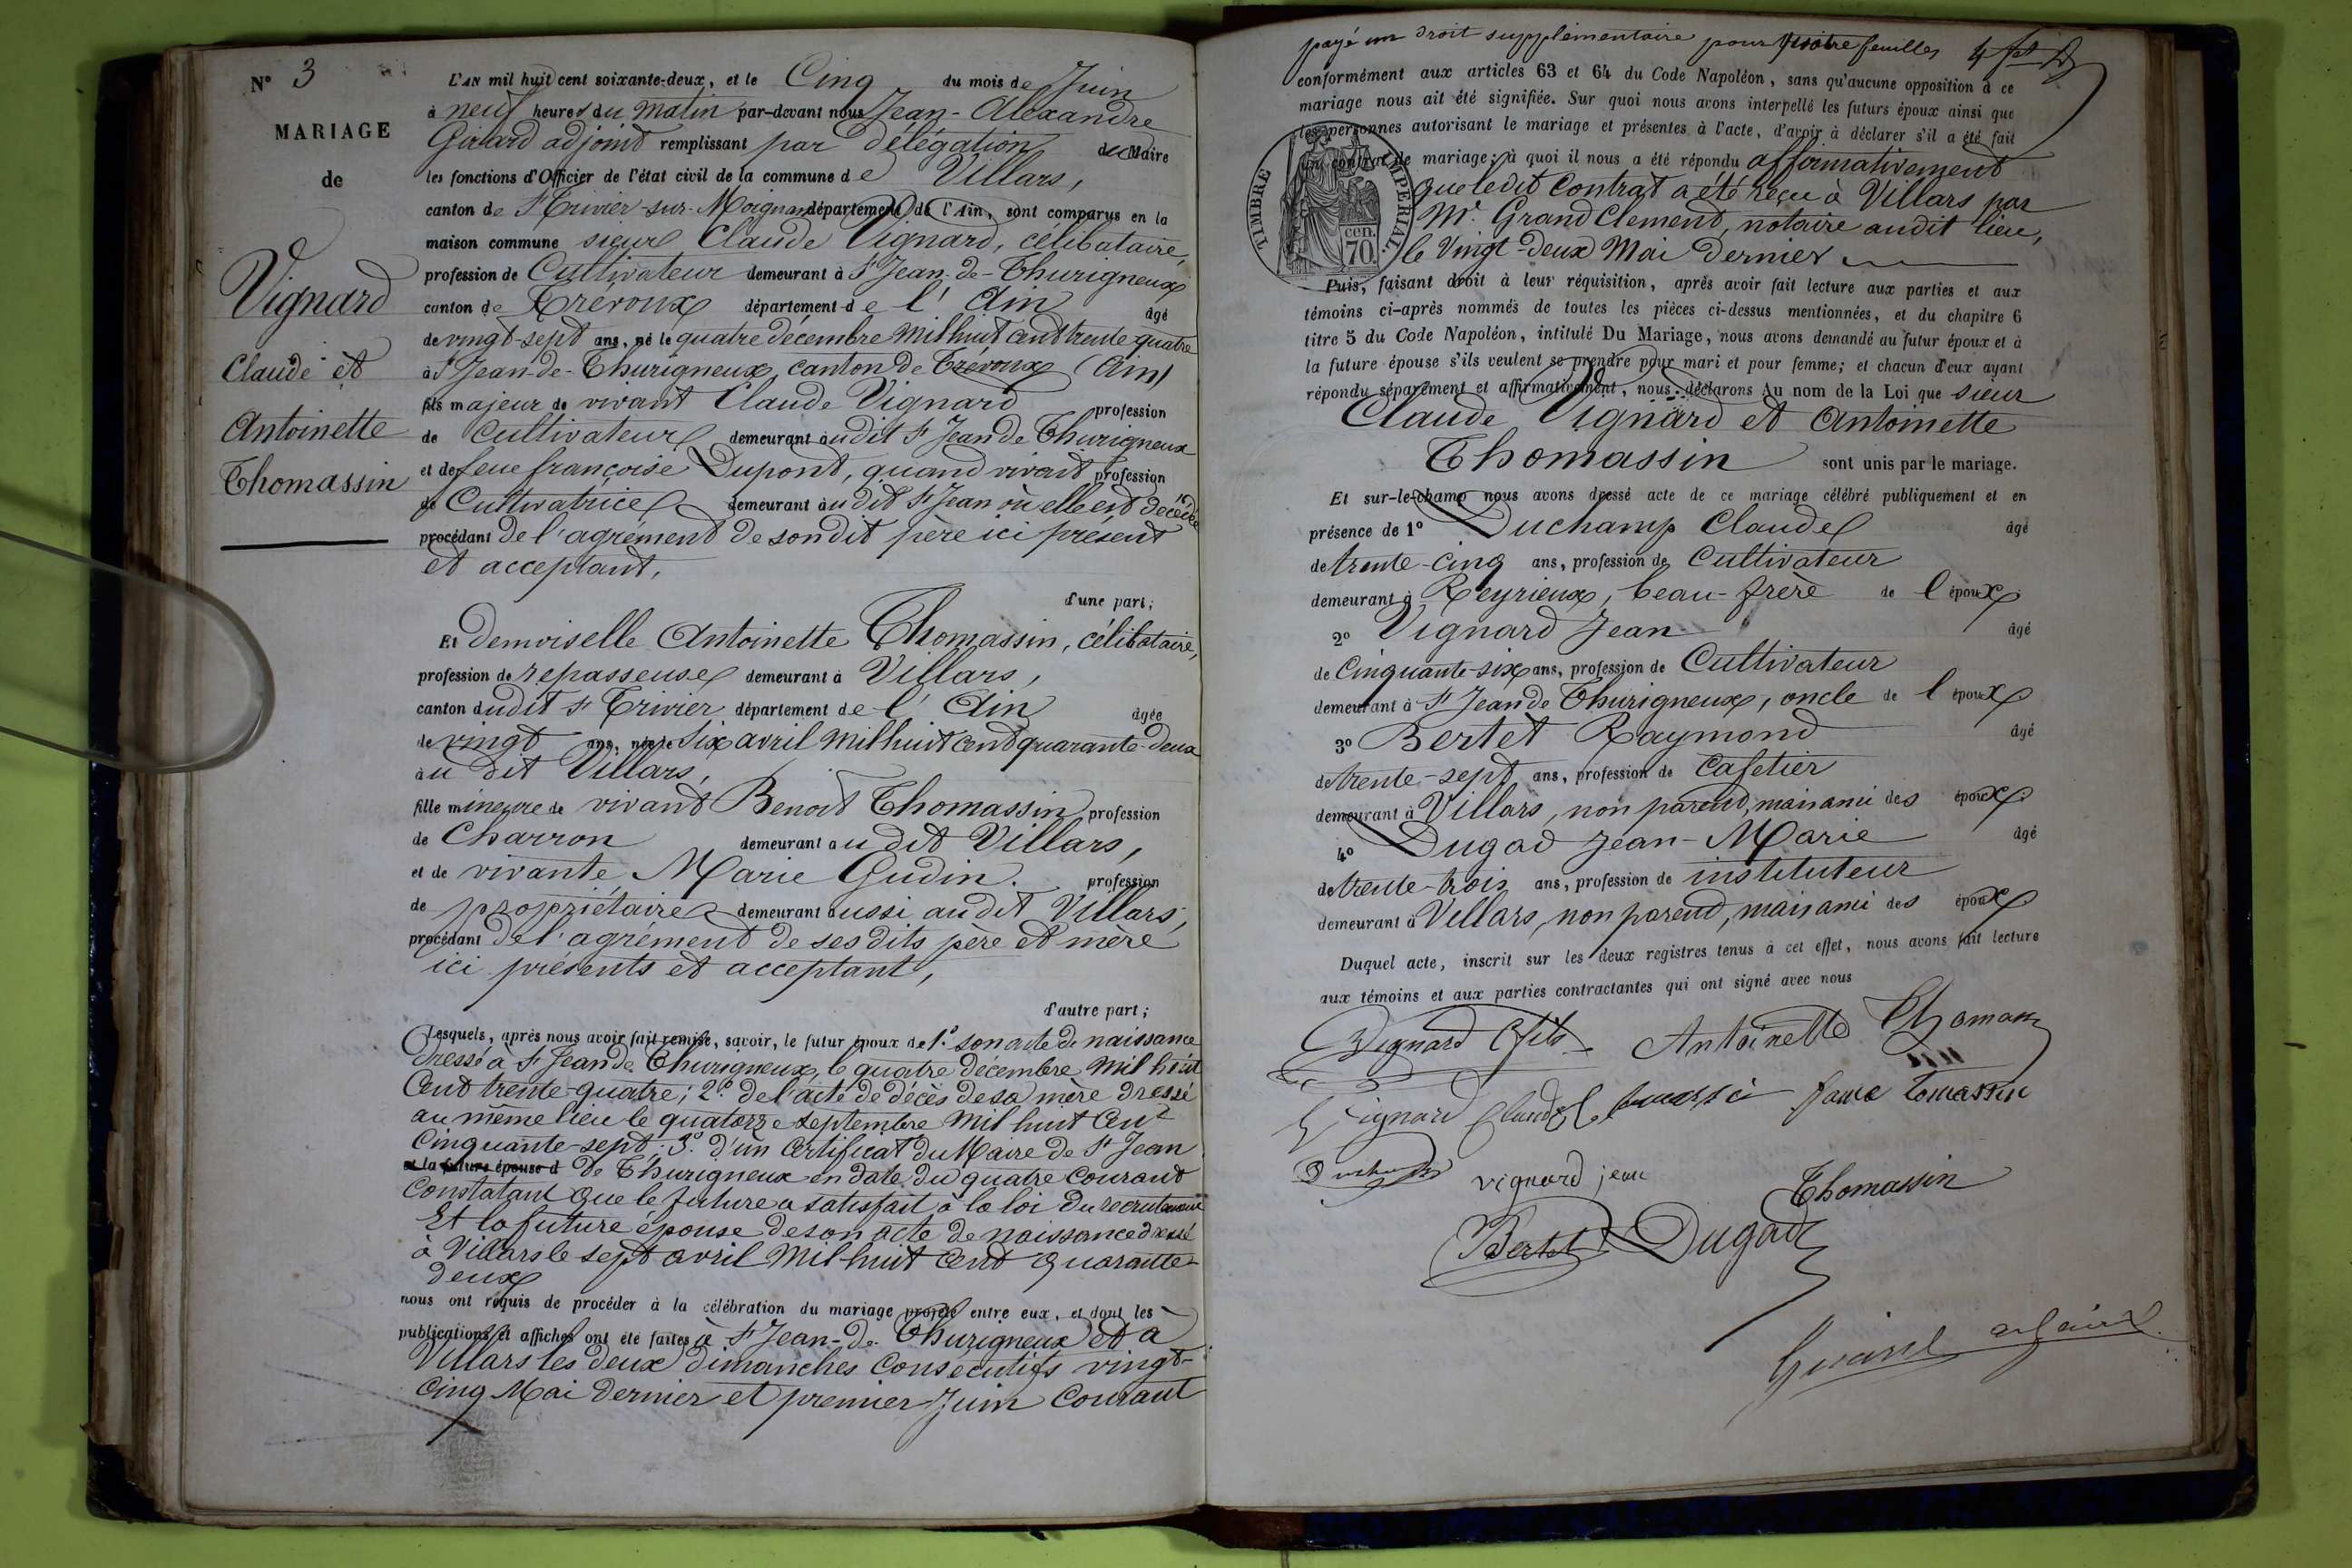 N° 3
MARIAGE
de
Vignard
Claude et
Antoinette
Thomassin
L'AN mil huit cent soixante-deux, et le Cinq du mois de Juin
à neuf heures du matin par-devant nous Jean-Alexandre
Girard adjoint remplissant par délégation du Maire
les fonctions d'Officier de l'état civil de la commune de Villars,
canton de St Trivier-sur-Moignans département de l'Ain, sont comparus en la
maison commune sieur Claude Vignard, célibataire,
profession de Cultivateur demeurant à St Jean-de-Thurigneux
canton de Trévoux département de l'Ain âgé
de vingt-sept ans, né le quatre décembre mil huit cent trente quatre
à St Jean-de-Thurigneux, canton de Trévoux (Ain)
fils majeur de vivant Claude Vignard profession
de Cultivateur demeurant audit St Jean de Thurigneux
et de feue françoise Dupont, quand vivait profession
de Cultivatrice demeurant audit St Jean où elle est décédée
procédant de l'agrément de son dit père ici présent
et acceptant,
d'une part;
Et demoiselle Antoinette Thomassin, célibataire,
profession de repasseuse demeurant à Villars,
canton dudit St Trivier département de l'Ain âgée
de vingt ans, née le Six avril mil huit cent quarante-deux
au dit Villars,
fille mineure de vivant Benoit Thomassin profession
de Charron demeurant audit Villars,
et de vivante Marie Gudin. profession
de propriétaire demeurant aussi audit Villars,
procédant de l'agrément de ses dits père et mère
ici présents et acceptant,
d'autre part;
Lesquels, après nous avoir fait remise, savoir, le futur époux de 1° son acte de naissance
dressé à St Jean de Thurigneux, le quatre décembre mil huit
Cent trente-quatre; 2° de l'acte de décès de sa mère dressé
au même lieu le quatorze septembre mil huit Cent
Cinquante-sept; 3° d'un Certificat du Maire de St Jean
et la future épouse d de Thurigneux en date du quatre Courant
Constatant que le future a satisfait à la loi du recrutement
Et la future épouse de son acte de naissance dressé
à Villars le sept avril mil huit cent quarante-
deux
nous ont requis de procéder à la célébration du mariage projeté entre eux, et dont les
publications et affiches ont été faites à St Jean-de-Thurigneux et à
Villars les deux dimanches Consecutifs vingt-
Cinq Mai dernier et premier Juin Courant
payé un droit supplémentaire pour quatre feuilles
conformément aux articles 63 et 64 du Code Napoléon, sans qu'aucune opposition à ce
mariage nous ait été signifiée. Sur quoi nous avons interpellé les futurs époux ainsi que
les personnes autorisant le mariage et présentes à l'acte, d'avoir à déclarer s'il a été fait
un contrat de mariage; à quoi il nous a été répondu affirmativement
que ledit Contrat a été reçu à Villars par
Me. Grand Clement, notaire audit lieu,
le Vingt-deux Mai dernier
TIMBRE IMPERIAL.
cen.
70.
Puis, faisant droit à leur réquisition, après avoir fait lecture aux parties et aux
témoins ci-après nommés de toutes les pièces ci-dessus mentionnées, et du chapitre 6
titre 5 du Code Napoléon, intitulé Du Mariage, nous avons demandé au futur époux et à
la future épouse s'ils veulent se prendre pour mari et pour femme; et chacun d'eux ayant
répondu séparément et affirmativement, nous déclarons Au nom de la Loi que sieur
Claude Vignard et Antoinette
Thomassin sont unis par le mariage.
Et sur-le-champ nous avons dressé acte de ce mariage célébré publiquement et en
présence de 1° Duchamp Claude âgé
de trente-cinq ans, profession de Cultivateur
demeurant à Reyrieux, beau-frère de l'époux
2° Vignard Jean âgé
de Cinquante-six ans, profession de Cultivateur
demeurant à St Jean de Thurigneux, oncle de l'époux
3° Bertet Raymond âgé
de trente-sept ans, profession de Cafetier
demeurant à Villars, non parent, mais ami des époux
4° Dugad Jean-Marie âgé
de trente-trois ans, profession de instituteur
demeurant à Villars, non parent, mais ami des époux
Duquel acte, inscrit sur les deux registres tenus à cet effet, nous avons fait lecture
aux témoins et aux parties contractantes qui ont signé avec nous
Vignard fils Antoinette Thomassin
Vignard Claude tomassin
vignard jean
Thomassin
Bertet Dugad
Girard adjoint